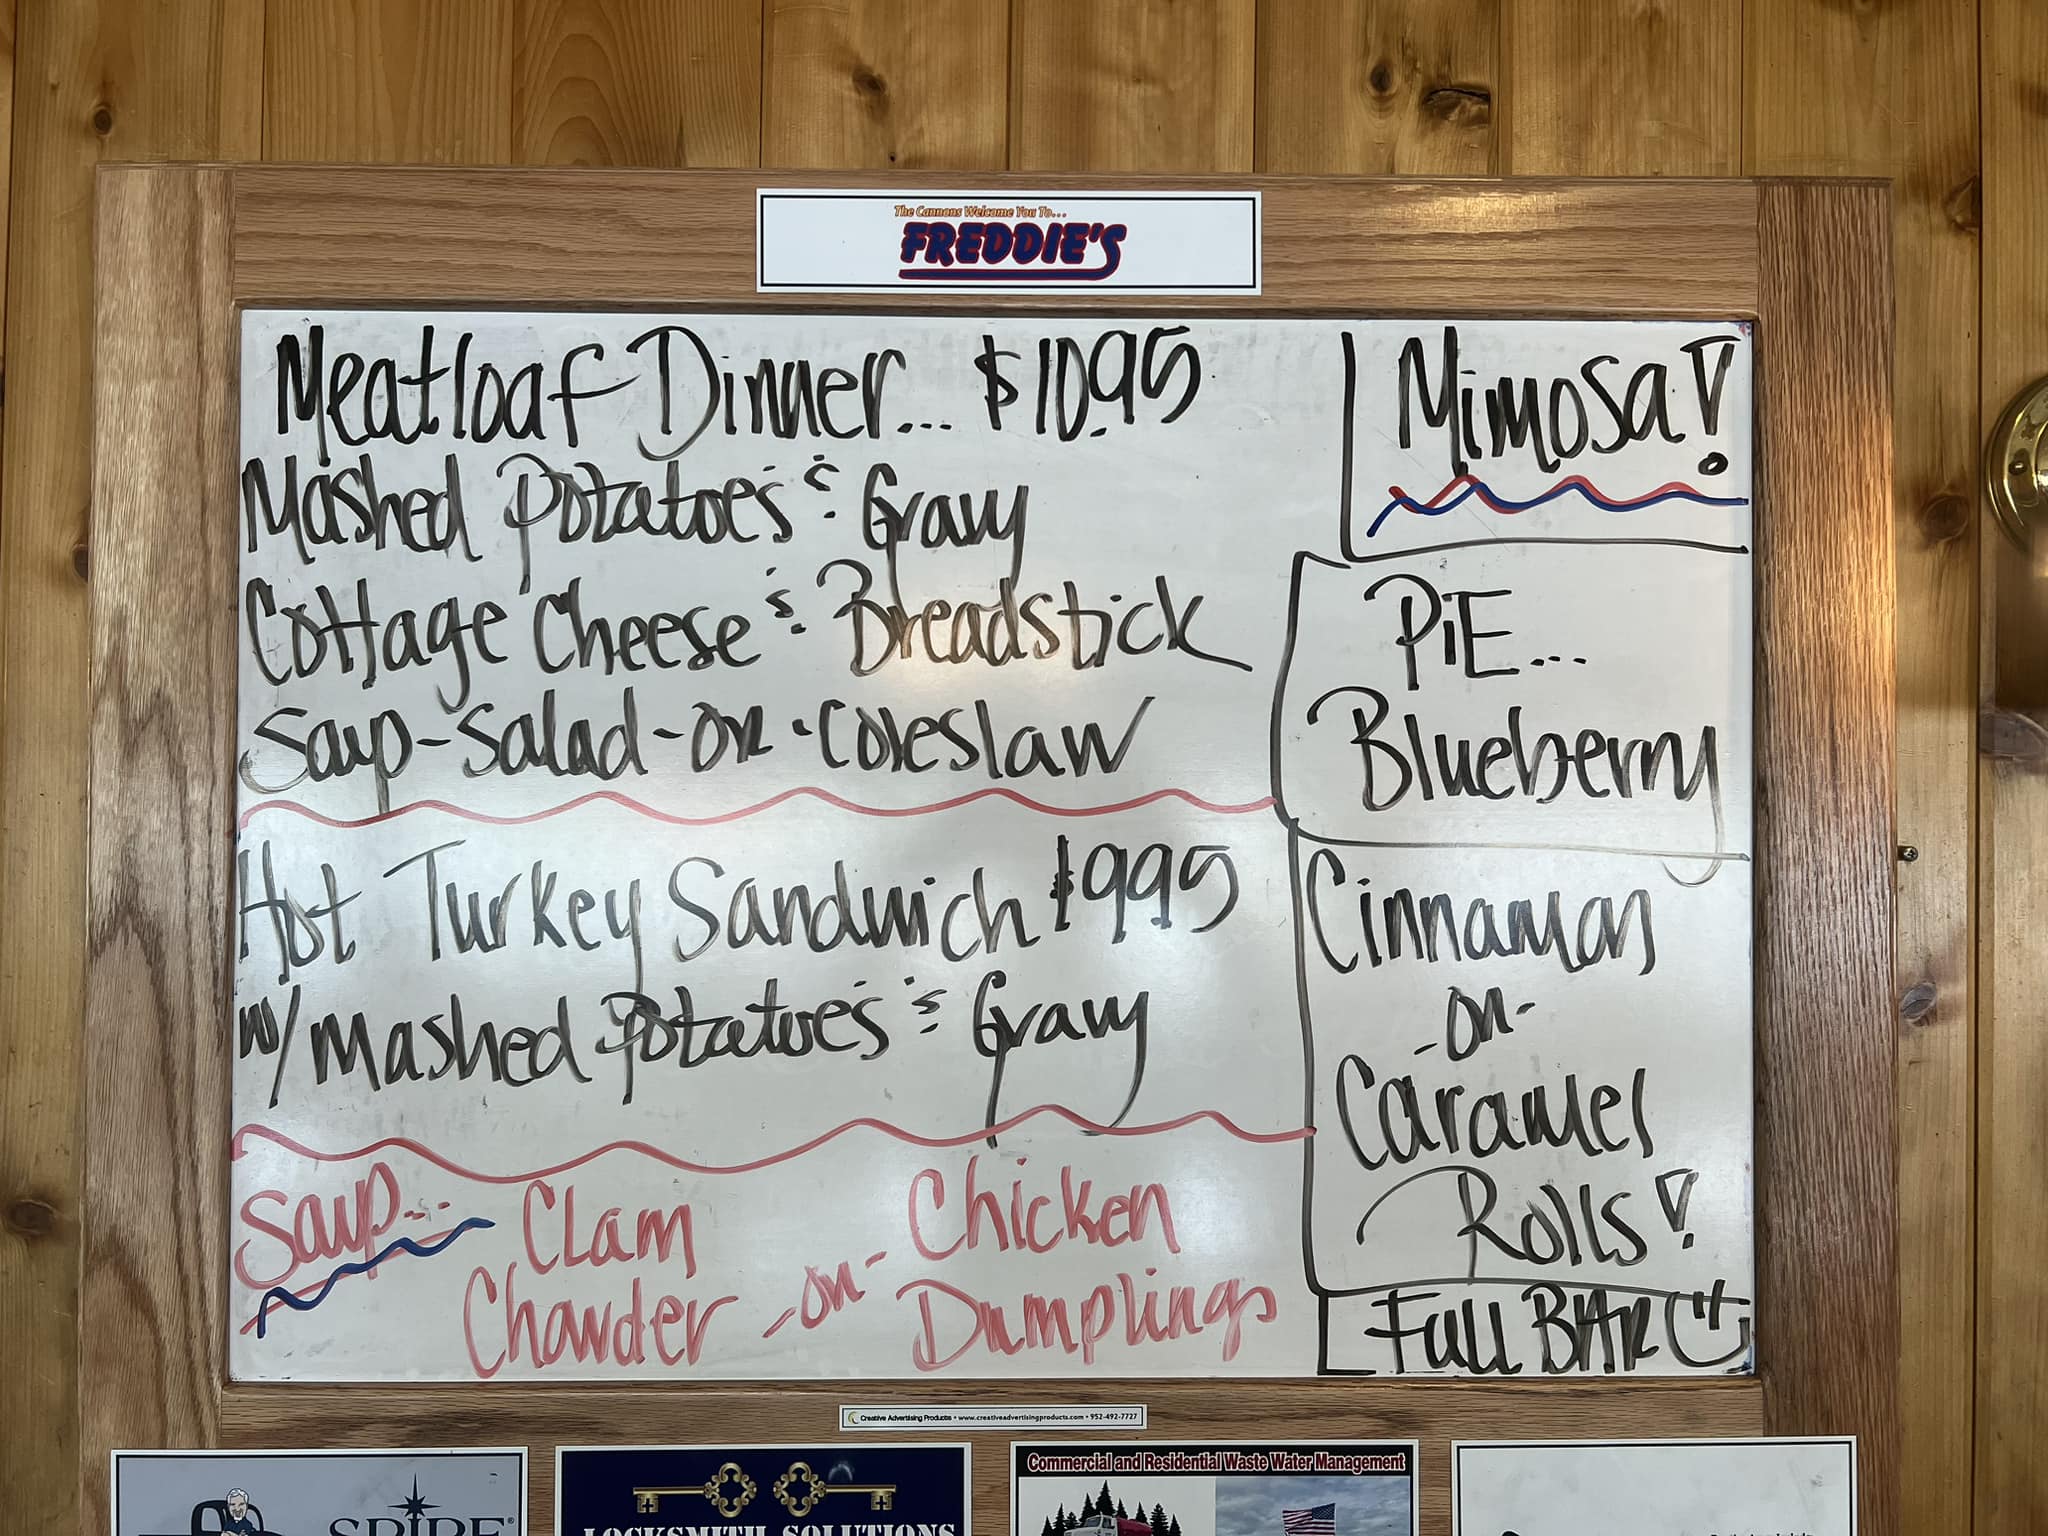 The Cannons Welcome You To...
FREDDIE'S
Meatloaf Dinner... $10.95
Mashed Potatoe's & Gravy
Cottage Cheese & Breadstick
Soup-Salad-or-Coleslaw
Hot Turkey Sandwich $9.95
w/ Mashed Potatoe's & Gravy
Soup... Clam Chicken
Chowder -or- Dumplings
Mimosa!
PiE...
Blueberry
Cinnamon
-or-
Caramel
Rolls!
Full BAR
Creative Advertising Products • www.creativeadvertisingproducts.com • 952-492-7727
SPIRE®
LOCKSMITH SOLUTIONS
Commercial and Residential Waste Water Management